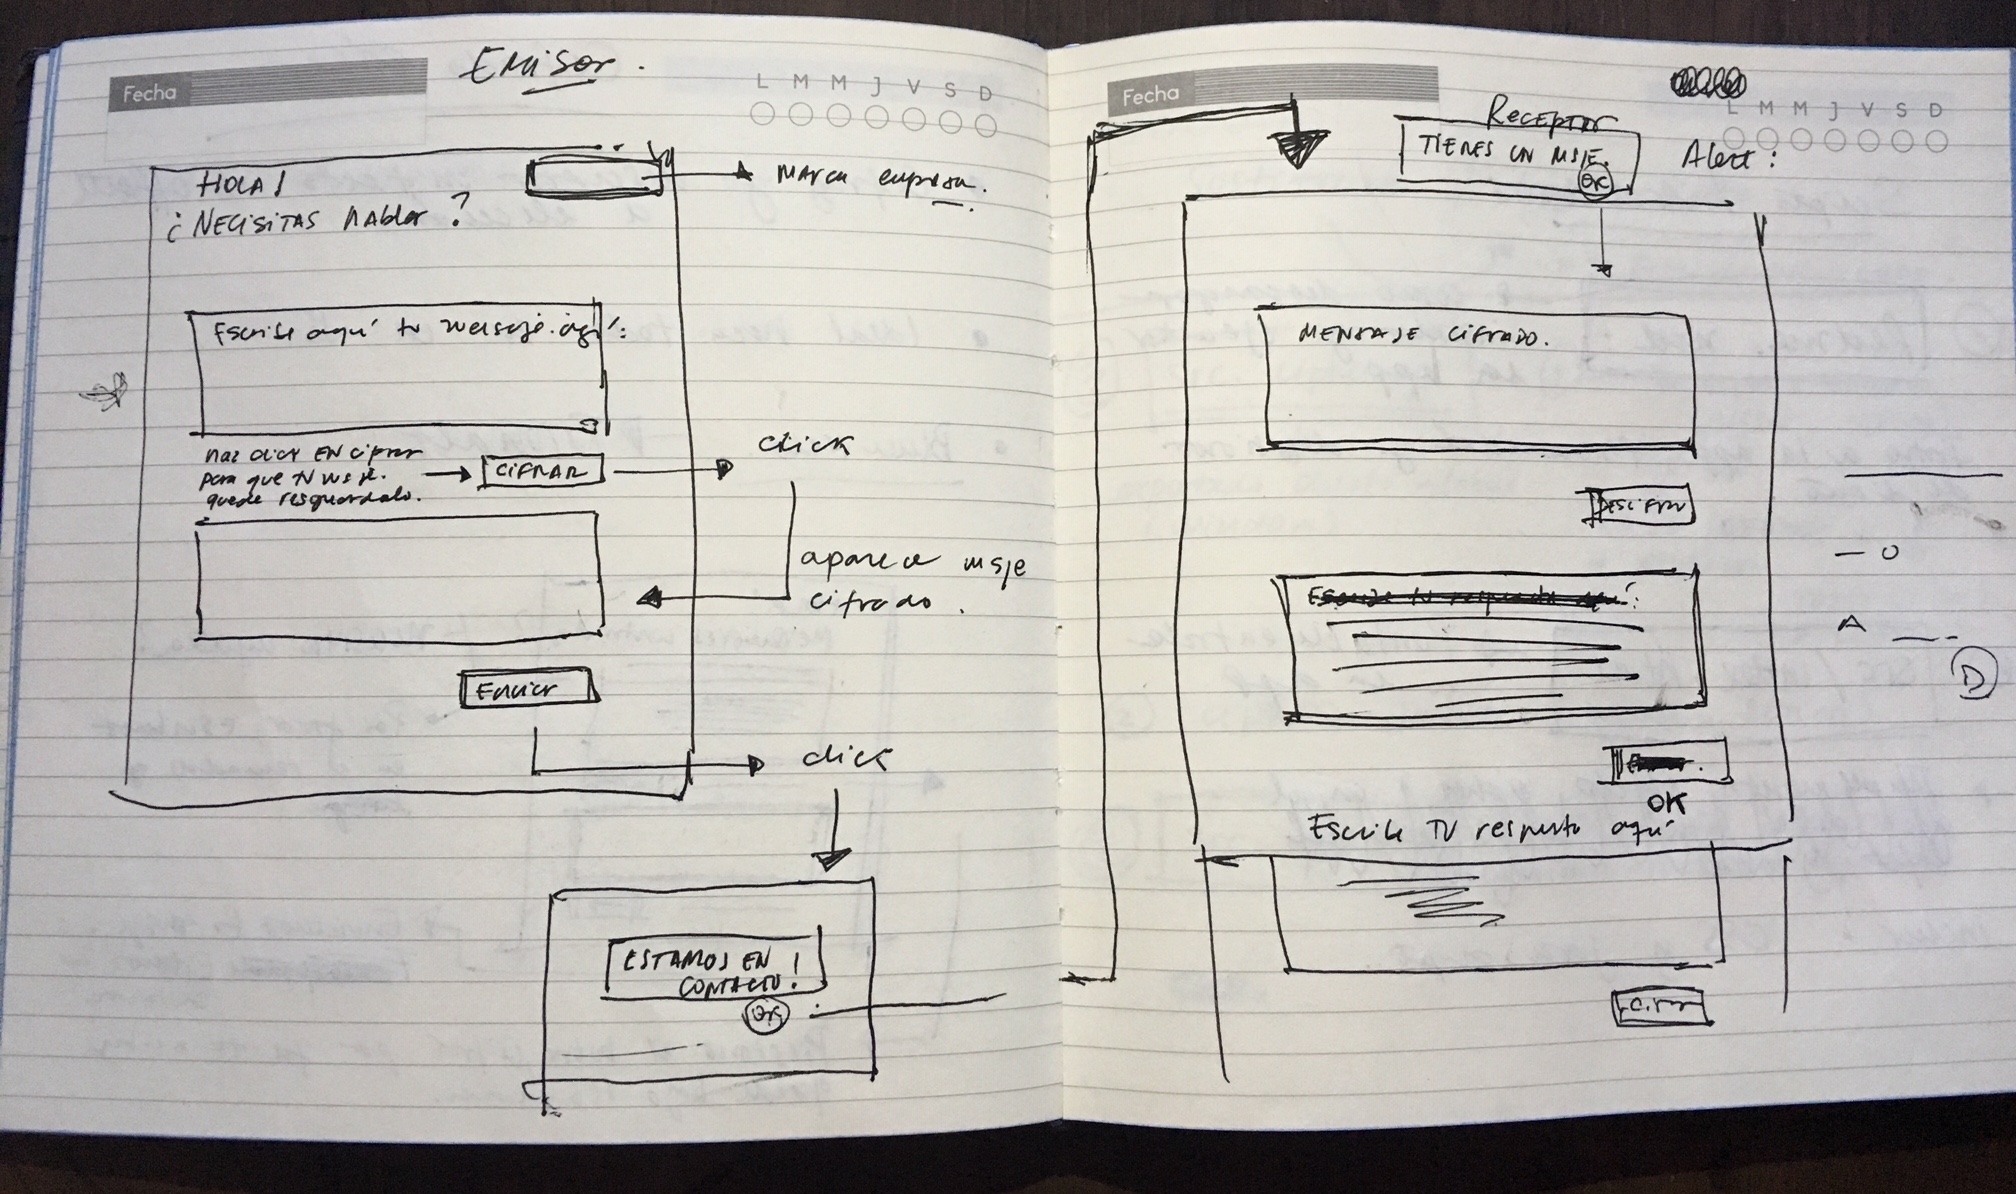 Fecha
EMISOR.
L M M J V S D
HOLA!
¿NECISITAS hablar?
MARCA empresa.
Escribe aquí tu mensaje. aquí:
haz click EN cifrar
para que tu msje.
quede resguardado.
CIFRAR
click
aparece msje
cifrado.
Enviar
click
ESTAMOS EN
CONTACTO!
OK
Fecha
L M M J V S D
RECEPTOR
TIENES UN MSJE.
OK
Alert:
MENSAJE CIFRADO.
DESCIFRAR
Escribe tu respuesta aquí:
OK
Escribe TU respuesta aquí
Cifrar
O
A
D